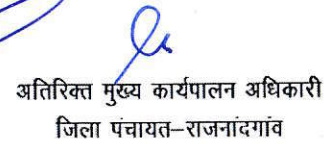 अतिरिक्त मुख्य कार्यपालन अधिकारी
जिला पंचायत–राजनांदगांव